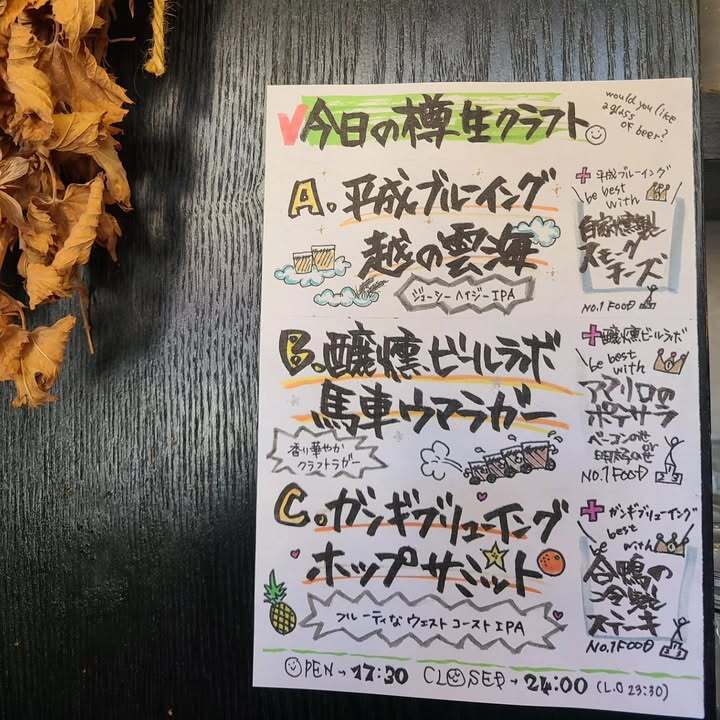 今日の樽生クラフト
would you like
a glass
of beer?
A. 平成ブルーイング
越の雲海
ジューシーヘイジーIPA
+平成ブルーイング
be best
with
自家燻製
スモーク
チーズ
NO.1 FOOD
B. 醸燻ビールラボ
馬車ウマラガー
香り華やか
クラフトラガー
+醸燻ビールラボ
be best
with
アマリロの
ポテサラ
ベーコンのせ
or
明太のせ
NO.1 FOOD
C. ガンギブリューイング
ホップサミット
フルーティなウェストコーストIPA
+ガンギブリューイング
be best
with
合鴨の
冷製
ステーキ
NO.1 FOOD
OPEN→17:30 CLOSED→24:00 (L.O 23:30)